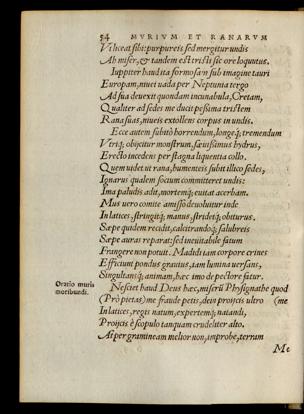 54 MVRIVM ET RANARVM
Vt liceat sibi: purpureis sed mergitur undis
Ah miser, & tandem est tristi sic ore loquutus.
Iuppiter haud ita formosam sub imagine tauri
Europam, niuei uada per Neptunia tergo
Ad sua deuexit quondam incunabula, Cretam,
Qualiter ad sedes me ducit pessima tristem
Rana suas, niueis extollens corpus in undis.
Ecce autem subitò horrendum, longeq́; tremendum
Vtriq; obijcitur monstrum, sæuissimus hydrus,
Erecto incedens per stagna liquentia collo.
Quem uidet ut rana, humenteis subit illico sedes,
Ignarus qualem socium committeret undis:
Ima paludis adit, mortemq́; euitat acerbam.
Mus uero comite amisso deuoluitur inde
In latices, stringitq́; manus, stridetq́; obiturus.
Sæpe quidem recidit, calcitrandoq́; salubreis
Sæpe auras reparat: sed ineuitabile fatum
Frangere non potuit. Madidi tam corpore crines
Efficiunt pondus grauius, tam lumina uersans,
Singultansq́; animam, hæc imo de pectore fatur.
Oratio muris
moribundi.
Nesciet haud Deus hæc, miserū Physignathe quod
(Prò pietas) me fraude petis, deijcis ultro (me
In latices, regis natum, expertemq́; natandi,
Proijcis è scopulo tanquam crudeliter alto.
At per gramineam melior non, improbe, terram
Me